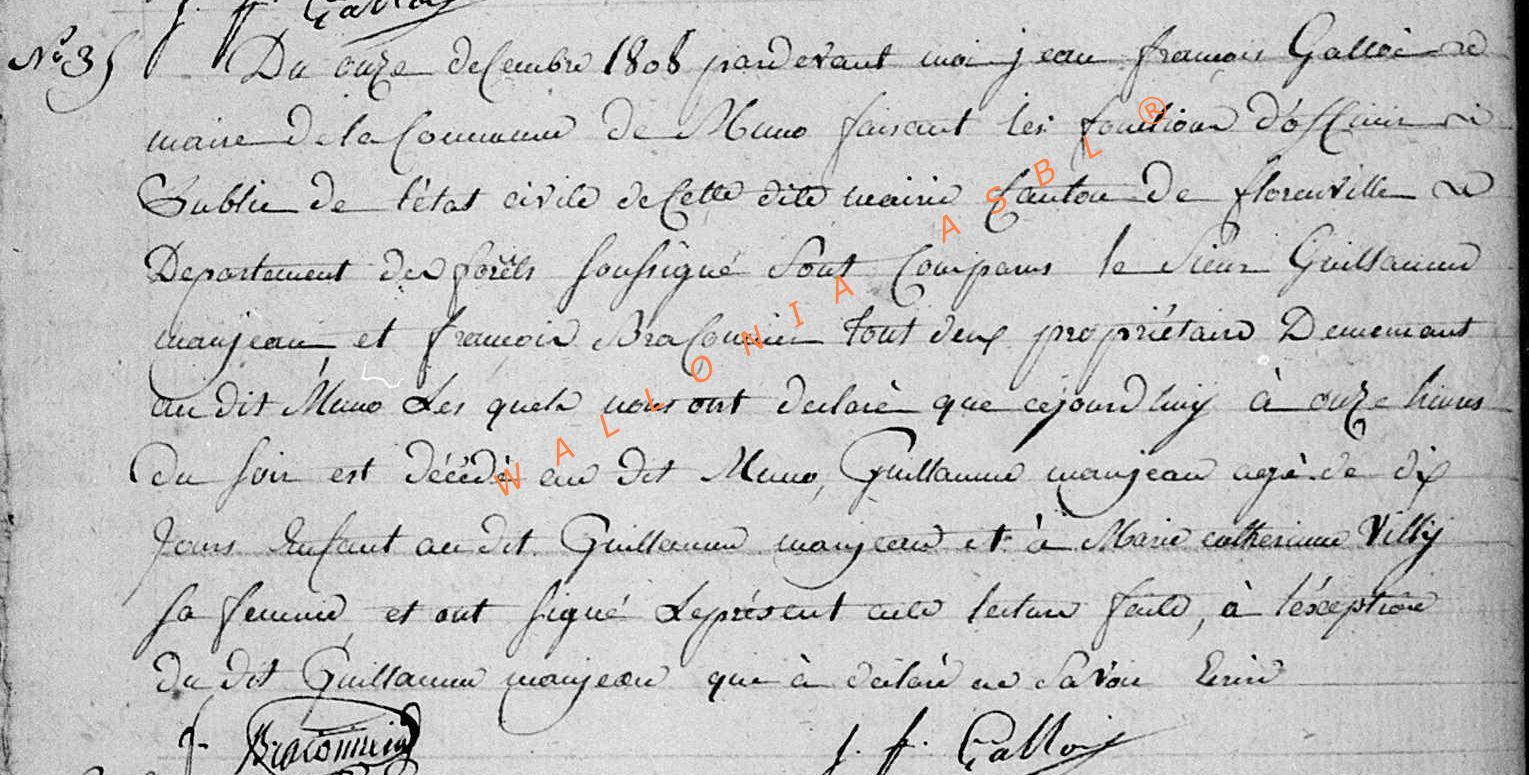 J. f. Gallois
N.º 35 Du onze decembre 1808 pardevant moi jean françois Gallois
maire de la Commune de Muno faisant les fonctions d'officier
Public de l'état civile de Cette dite mairie Canton de florenville
Departement des forêts soussigné Sont Comparus le Sieur Guillaume
manjean et françois Braconnier tout deux propriétaire Demeurant
au dit Muno Les quels nous ont declaré que cejourdhuy à onze heures
du soir est décédé au dit Muno, Guillaume manjean agé de dix
Jours Enfant au dit Guillaume manjean et à Marie catherinne Villy
sa femme, et ont signé Leprésent acte lecture faite, à l'éxception
du dit Guillaume manjean qui à déclaré ne Savoir Ecrire
f. Braconnier J. f. Gallois
WALLONIA ASBL ®